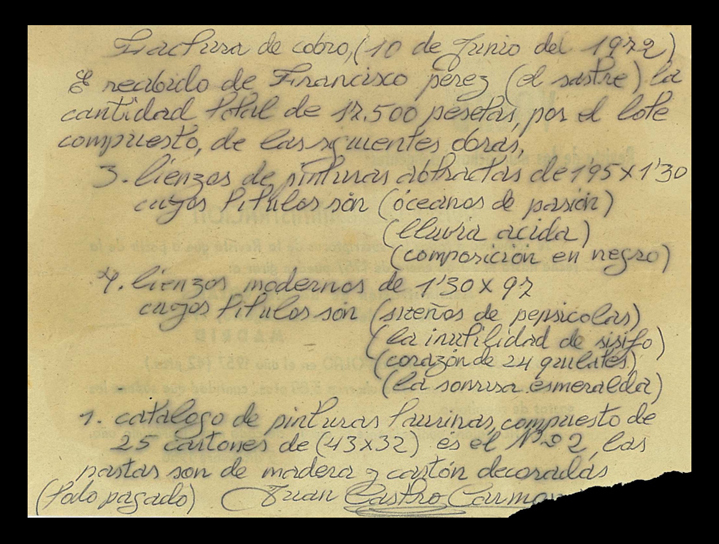 Fractura de cobro, (10 de Junio del 1972)
E recibido de Francisco perez (el sastre) la
cantidad total de 17,500 pesetas, por el lote
compuesto, de las siguientes obras,
3. lienzos de pinturas abstractas de 1'95 x 1'30
cuyos titulos són (óceanos de pasión)
(lluvia acida)
(composición en negro)
4. lienzos modernos de 1'30 x 97
cuyos titulos són (sueños de pepsicolas)
(la inutilidad de sisifo)
(corazón de 24 quilates)
(la sonrisa esmeralda)
1. catálogo de pinturas taurinas, compuesto de
25 cartones de (43x32) és el Nº 2, las
pastas son de madera y cartón decoradas
(todo pagado) Juan Castro